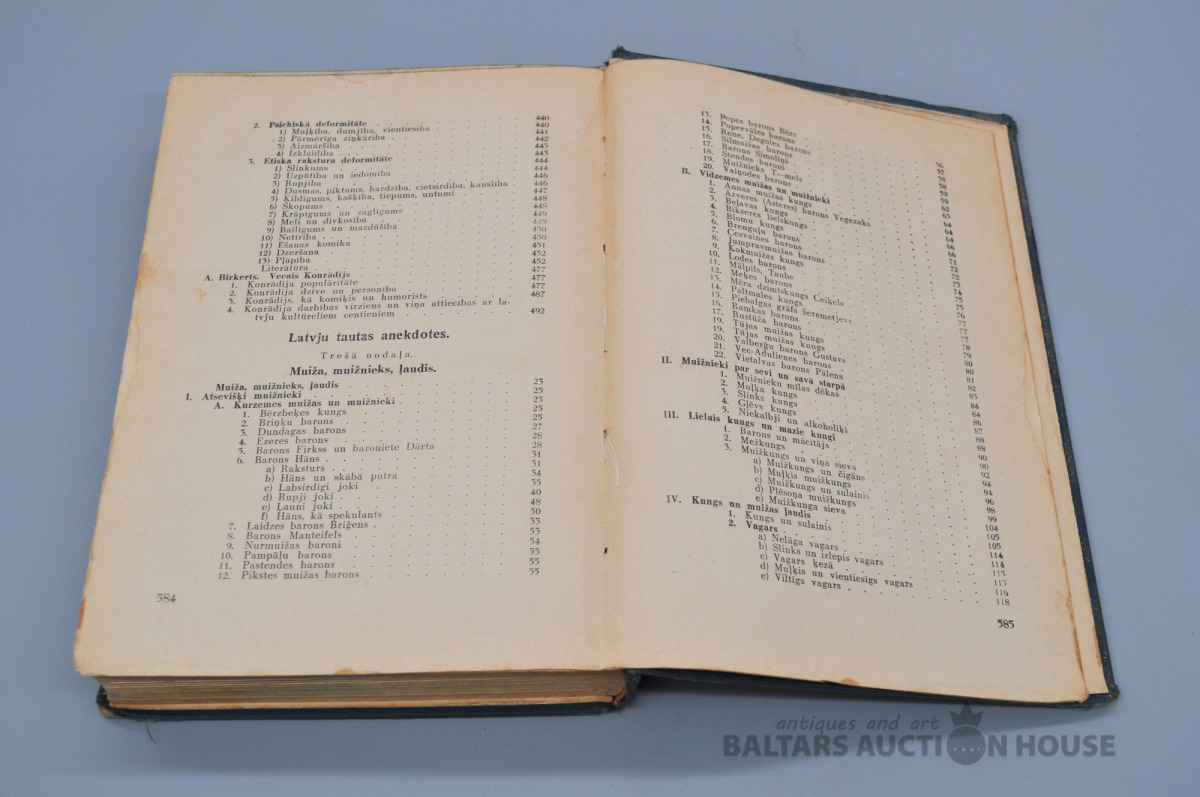 2. Psichiskā deformitāte . . . 440
1) Muļķība, dumjība, vientiesība . . . 440
2) Pārmērīga ziņkārība . . . 441
3) Aizmāršība . . . 442
4) Izklaidība . . . 443
3. Etiska rakstura deformitāte . . . 443
1) Slinkums . . . 444
2) Uzpūtība un iedomība . . . 444
3) Rupjība . . . 446
4) Dusmas, piktums, bardzība, cietsirdība, kauslība . 446
5) Ķildīgums, kašķība, tiepums, untumi . . . 447
6) Skopums . . . 448
7) Krāpīgums un zaglīgums . . . 448
8) Meli un divkosība . . . 449
9) Bailīgums un mazdūšība . . . 449
10) Netīrība . . . 450
11) Ēšanas komika . . . 450
12) Dzeršana . . . 451
13) Pļāpība . . . 452
Literātūra . . . 452
A. Birkerts. Vecais Konrādijs . . . 477
1. Konrādija populāritāte . . . 477
2. Konrādija dzīve un personība . . . 477
3. Konrādijs, kā komiķis un humorists . . . 487
4. Konrādija darbības virziens un viņa attiecības ar la-
tvju kultūreliem centieniem . . . 492
Latvju tautas anekdotes.
Trešā nodaļa.
Muiža, muižnieks, ļaudis.
Muiža, muižnieks, ļaudis . . . 23
I. Atsevišķi muižnieki . . . 25
A. Kurzemes muižas un muižnieki . . . 25
1. Bērzbeķes kungs . . . 25
2. Briņķu barons . . . 25
3. Dundagas barons . . . 27
4. Ezeres barons . . . 28
5. Barons Firkss un baroniete Dārta . . . 28
6. Barons Hāns . . . 31
a) Raksturs . . . 31
b) Hāns un skābā putra . . . 34
c) Labsirdīgi joki . . . 35
d) Rupji joki . . . 40
e) Ļauni joki . . . 48
f) Hāns, kā spekulants . . . 50
7. Laidzes barons Briģens . . . 53
8. Barons Manteifels . . . 53
9. Nurmuižas baroni . . . 54
10. Pampāļu barons . . . 55
11. Pastendes barons . . . 55
12. Pikstes muižas barons . . . 55
584
13. Popes barons Bārs
14. Popervāles barons
15. Rene, Degoles barons . . . 56
16. Silmuižas barons . . . 57
17. Barons Simoliņš . . . 58
18. Stendes baroni . . . 58
19. Muižnieks T—mels . . . 59
20. Vaiņodes barons . . . 59
B. Vidzemes muižas un muižnieki . . . 62
1. Annas muižas kungs . . . 63
2. Āzveres (Asteres) barons Vegezaks . . . 64
3. Beļavas kungs . . . 64
4. Bikseres lielskungs . . . 64
5. Blomu kungs . . . 66
6. Brenguļu barons . . . 66
7. Cesvaines barons . . . 71
8. Jumpravmuižas barons . . . 72
9. Kokmuižas kungs . . . 72
10. Lodes barons . . . 73
11. Mālpils, Taube . . . 74
12. Meķes barons . . . 75
13. Mēra dzimtskungs Ceiķels . . . 75
14. Paltmales kungs . . . 76
15. Piebalgas grāfs Šeremetjevs . . . 77
16. Ramkas barons . . . 77
17. Rustūža barons . . . 77
19. Tūjas muižas kungs . . . 78
19. Tūjas muižas kungs . . . 79
20. Valberģu barons Gustavs . . . 80
21. Vec-Adulienes barons . . . 80
22. Vietalvas barons Pālens . . . 81
II. Muižnieki par sevi un savā starpā . . . 82
1. Muižnieku mīlas dēkas . . . 83
2. Muļķa kungs . . . 84
3. Slinks kungs . . . 84
4. Gļēvs kungs . . . 86
5. Niekalbji un alkoholiķi . . . 87
III. Lielais kungs un mazie kungi . . . 88
1. Barons un mācītājs . . . 88
2. Mežkungs . . . 90
3. Muižkungs un viņa sieva . . . 90
a) Muižkungs un čigāns . . . 92
b) Muļķis muižkungs . . . 94
c) Muižkungs un sulainis . . . 94
d) Plēsoņa muižkungs . . . 96
e) Muižkunga sieva . . . 98
IV. Kungs un muižas ļaudis . . . 99
1. Kungs un sulainis . . . 104
2. Vagars . . . 105
a) Nelāga vagars . . . 105
b) Slinks un izlepis vagars . . . 114
c) Vagars ķezā . . . 114
d) Muļķis un vientiesīgs vagars . . . 115
e) Viltīgs vagars . . . 116
118
585
antiques and art
BALTARS AUCTION HOUSE